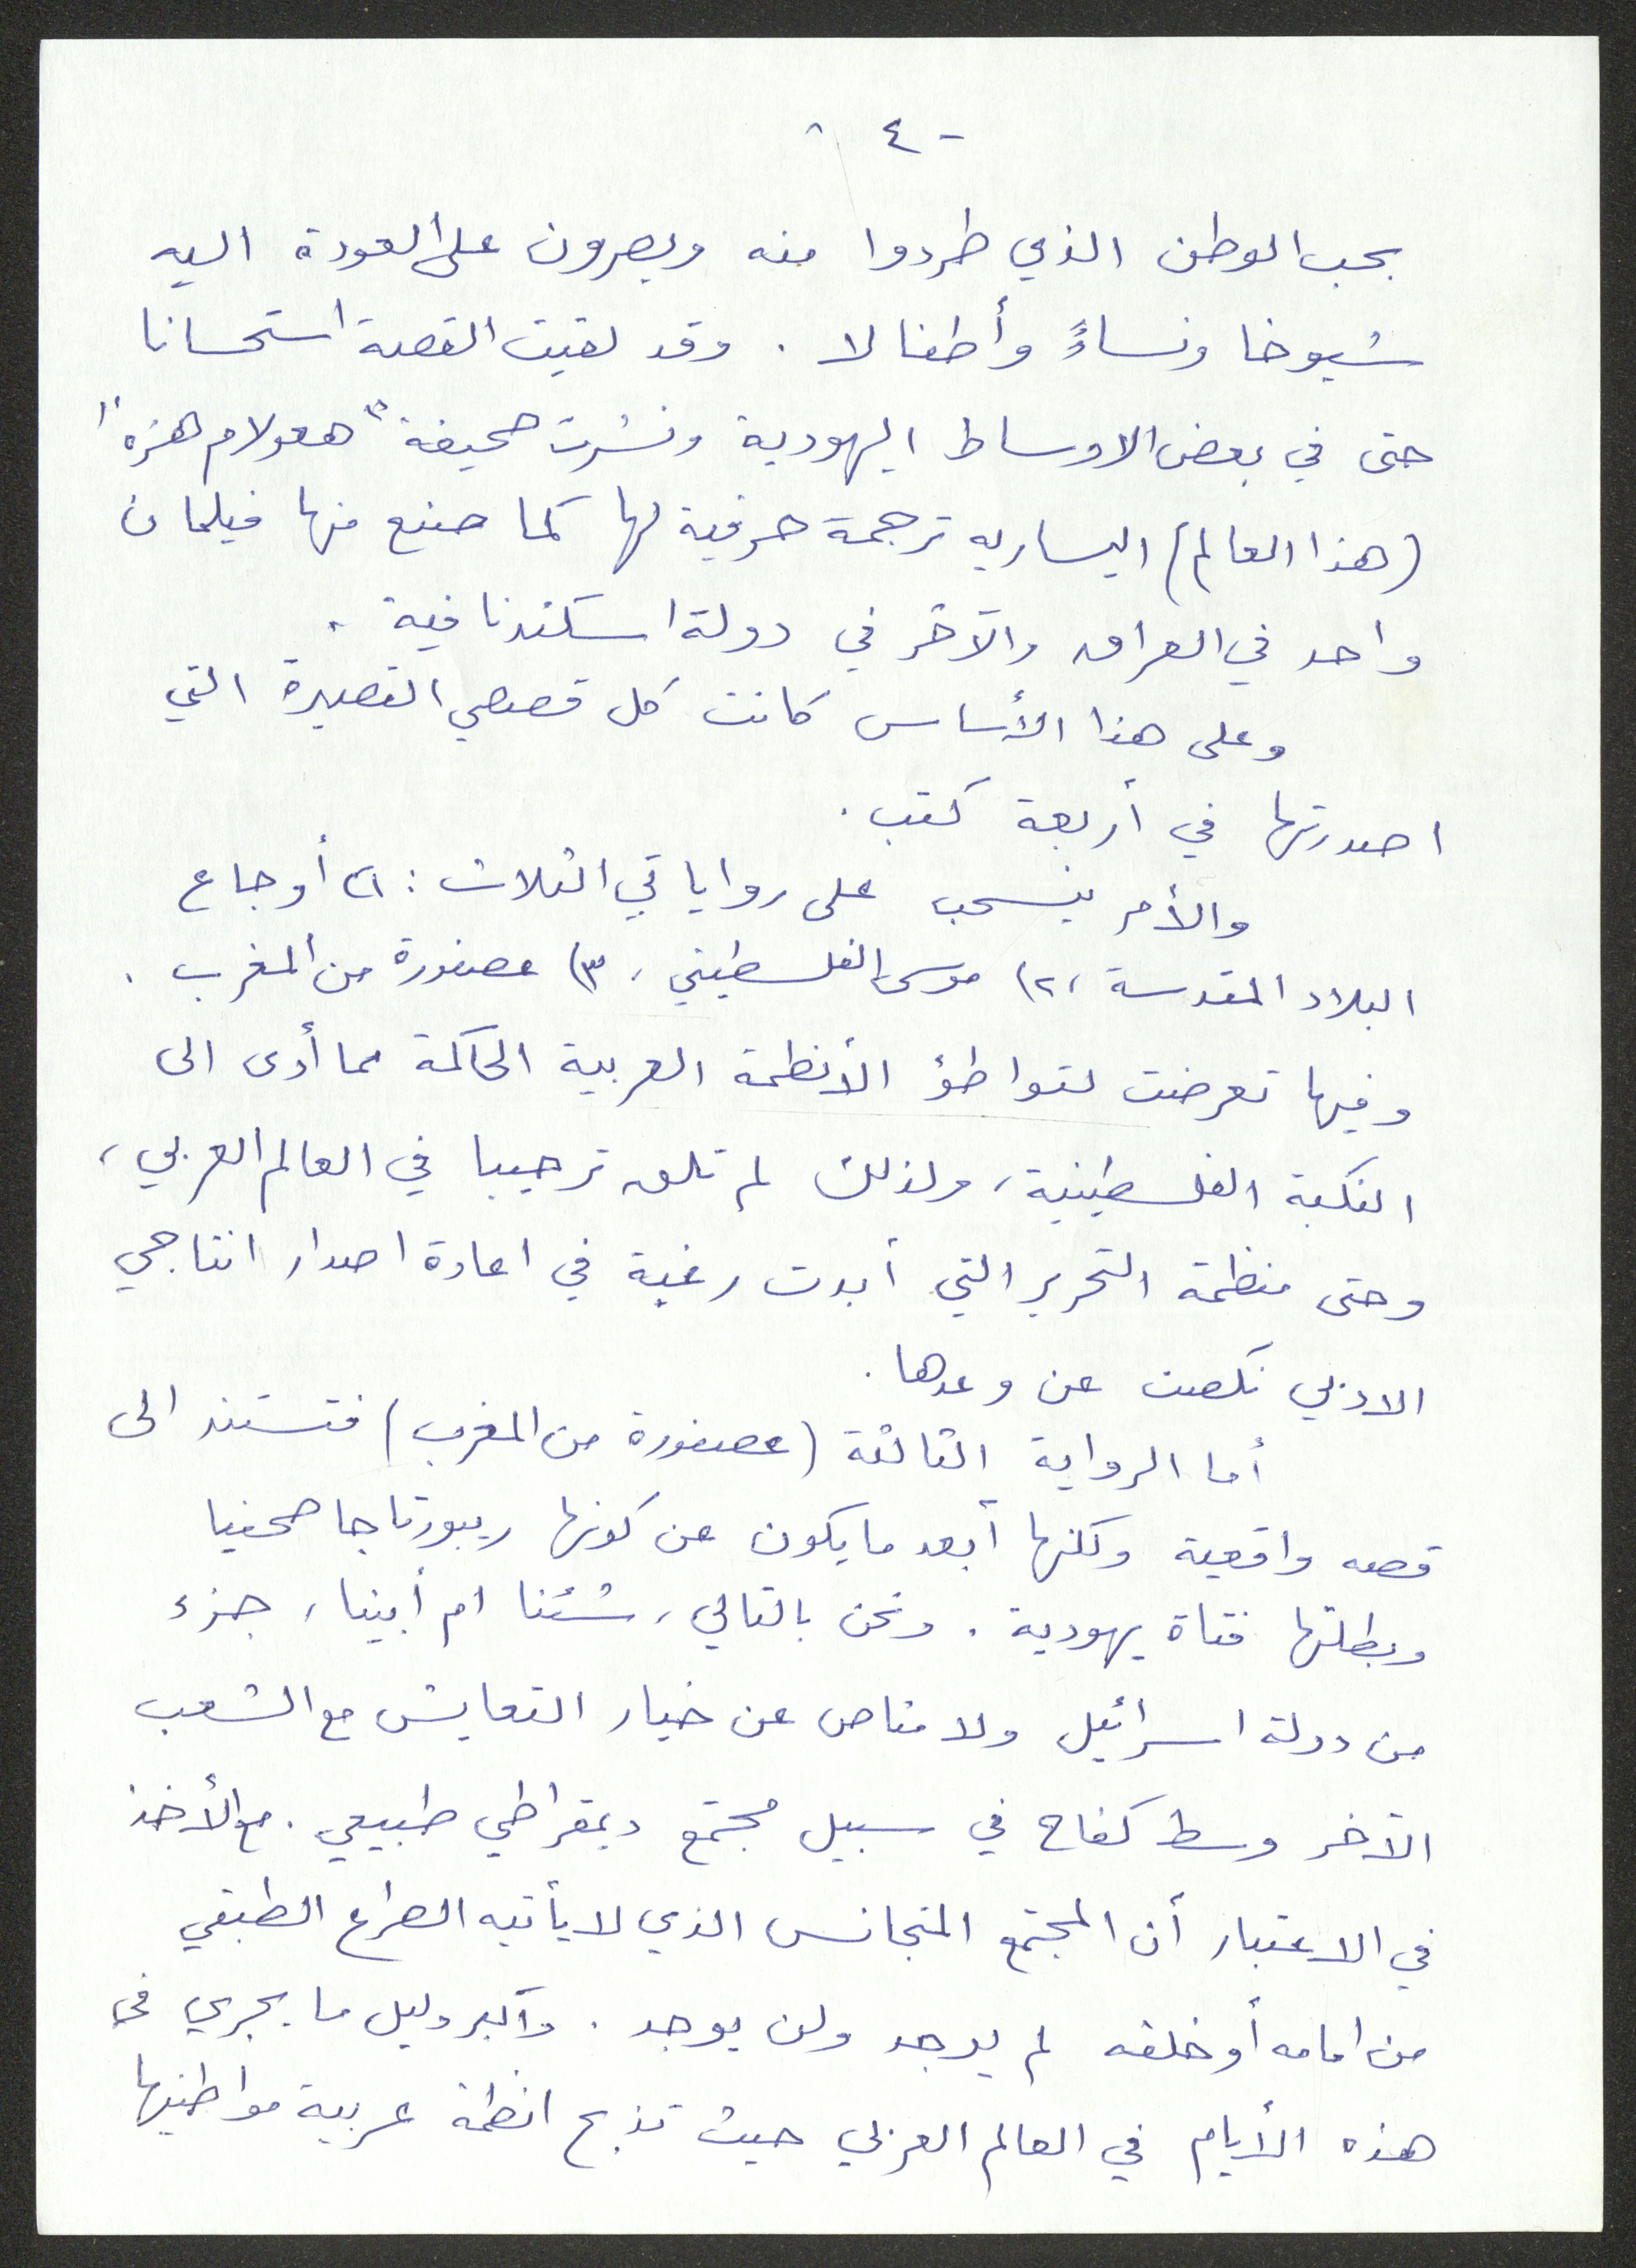 - ٤ -
بحب الوطن الذي طردوا منه ويصرون على العودة اليه
شيوخا ونساءً وأطفالا . وقد لقيت القصة استحسانا
حتى في بعض الاوساط اليهودية ونشرت صحيفة "هعولام هزه"
(هذا العالم) اليساريه ترجمة حرفية لها كما صنع منها فيلمان
واحد في العراق والآخر في دولة اسكندنافية .
وعلى هذا الأساس كانت كل قصصي القصيرة التي
اصدرتها في أربعة كتب .
والأمر ينسحب على رواياتي الثلاث : ١) أوجاع
البلاد المقدسة ، ٢) موسى الفلسطيني ، ٣) عصفورة من المغرب .
وفيها تعرضت لتواطؤ الأنظمة العربية الحاكمة مما أدى الى
النكبة الفلسطينية ، ولذلك لم تلق ترحيبا في العالم العربي ،
وحتى منظمة التحرير التي أبدت رغبة في اعادة اصدار انتاجي
الادبي نكصت عن وعدها .
أما الرواية الثالثة (عصفورة من المغرب) فتستند الى
قصه واقعية ولكنها أبعد ما يكون عن كونها ريبورتاجا صحفيا
وبطلتها فتاة يهودية . ونحن بالتالي ، شئنا ام أبينا ، جزء
من دولة اسرائيل ولا مناص عن خيار التعايش مع الشعب
الآخر وسط كفاح في سبيل مجتمع ديمقراطي طبيعي . مع الأخذ
في الاعتبار أن المجتمع المتجانس الذي لا يأتيه الصراع الطبقي
من امامه أو خلفه لم يوجد ولن يوجد . وأكبر دليل ما يجري في
هذه الأيام في العالم العربي حيث تذبح انظمة عربية مواطنيها